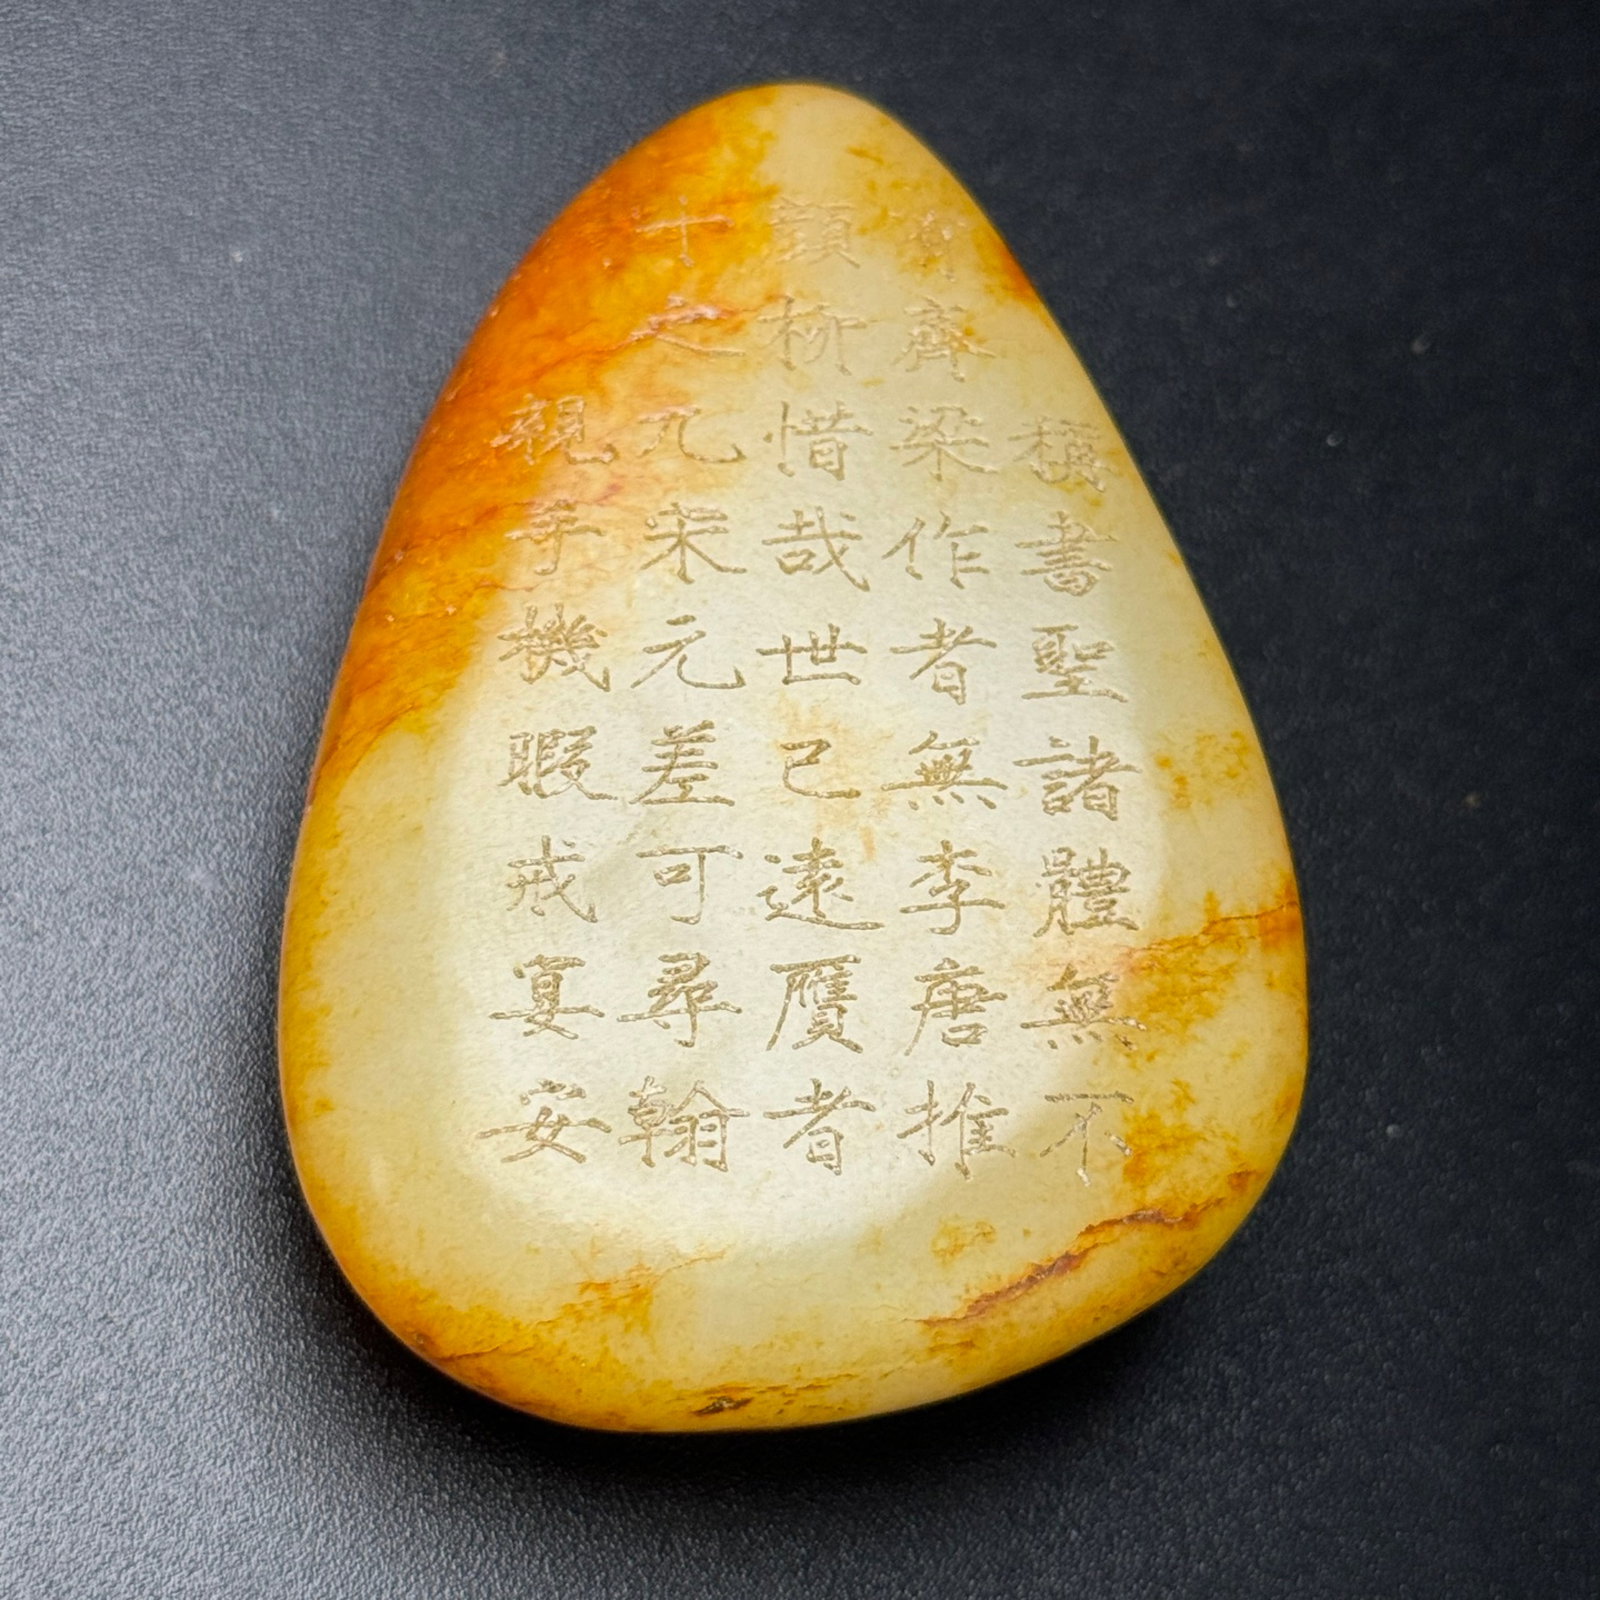 稱書聖諸體無不
有齊梁作者無李唐推
顏柳惜哉世已遠贋者
十之九宋元差可尋翰
親手機暇戒宴安